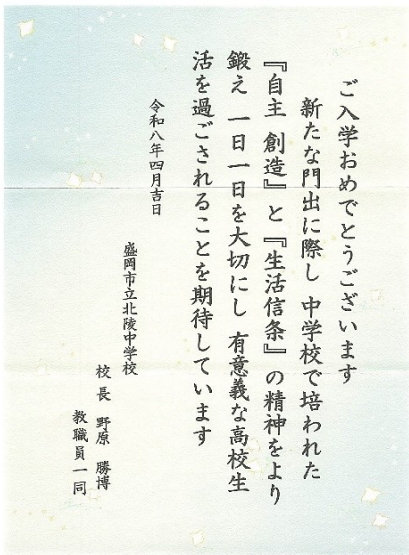 ご入学おめでとうございます
新たな門出に際し 中学校で培われた
『自主 創造』と『生活信条』の精神をより
鍛え 一日一日を大切にし 有意義な高校生
活を過ごされることを期待しています
令和八年四月吉日
盛岡市立北陵中学校
校長 野原 勝博
教職員一同